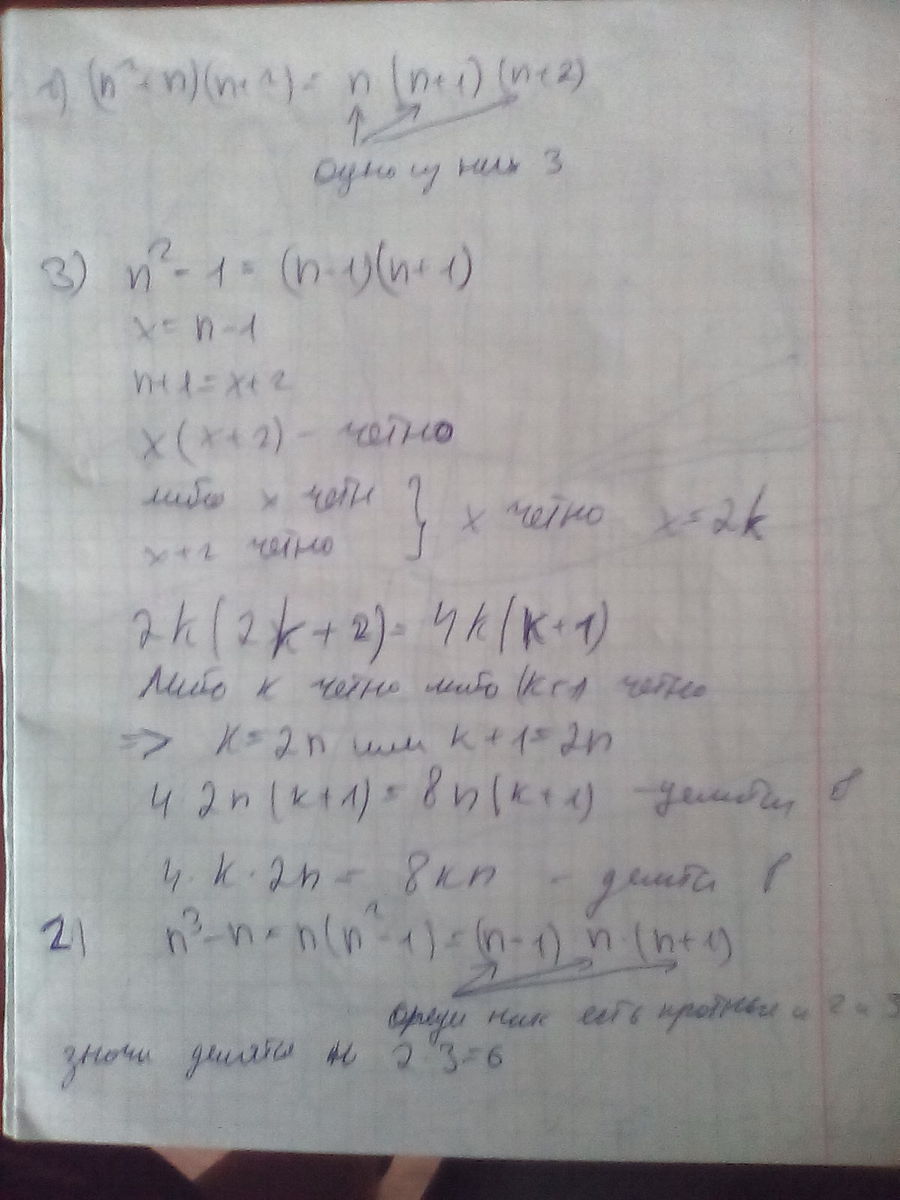 1) (n² + n)(n+2) = n (n+1) (n+2)
одно из них 3
3) n² - 1 = (n-1)(n+1)
x = n-1
n+1 = x+2
x(x+2) - четно
либо x четн } x четно x = 2k
x+2 четно
2k(2k+2) = 4k(k+1)
Либо k четно либо (k+1 четно
=> k = 2n или k+1 = 2n
4·2n(k+1) = 8n(k+1) - делится 8
4·k·2n = 8kn - делится 8
2) n³-n = n(n²-1) = (n-1) n·(n+1)
среди них есть кратные и 2 и 3
значи делятся н 2·3=6